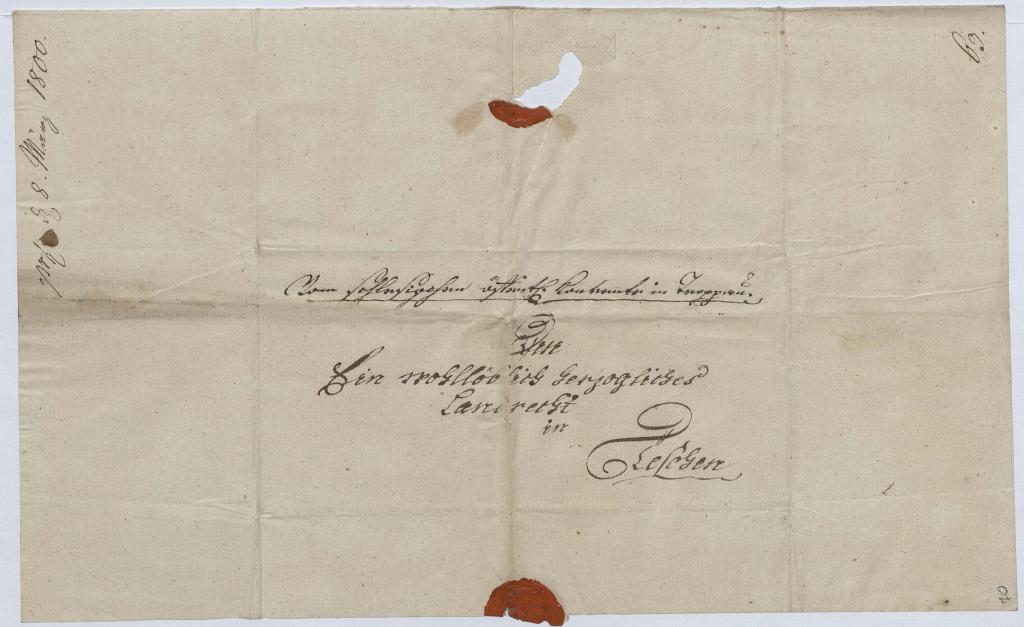 63.
8. März 1800.
Vom schlesischen in Troppau.
Ein wohllöblich herzogliches
Landrecht
in
Teschen
40